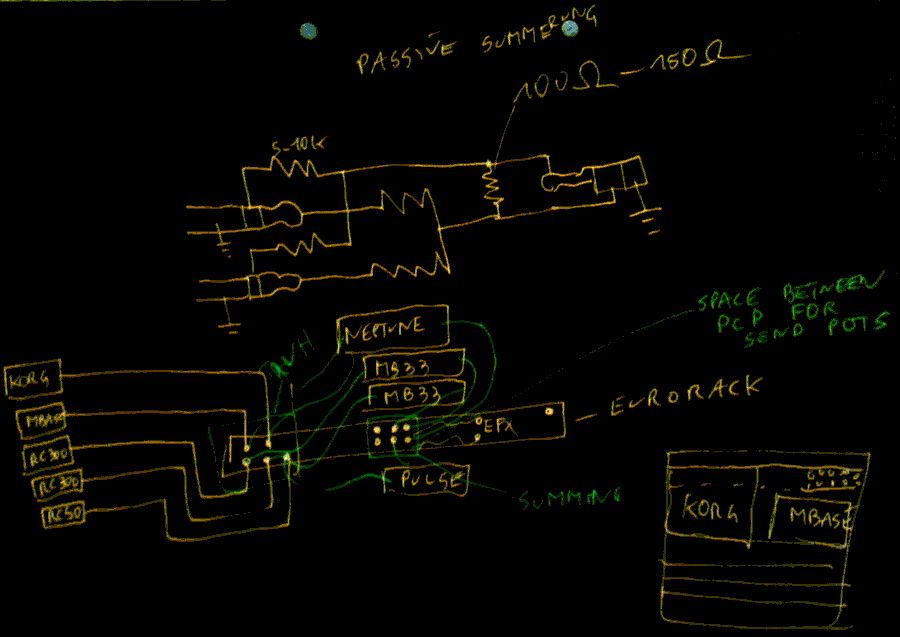 PASSIVE SUMMERUNG
100Ω – 150Ω
5-10K
SPACE BETWEEN
PCP FOR
SEND POTS
NEPTUNE
MB33
MB33
KORG
MBASE
RC300
RC300
RC50
EFX
EURORACK
PULSE
SUMMING
KORG
MBASE